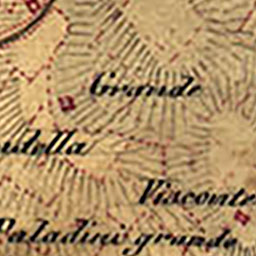 Grande
udella
Visconte
Paladini grande